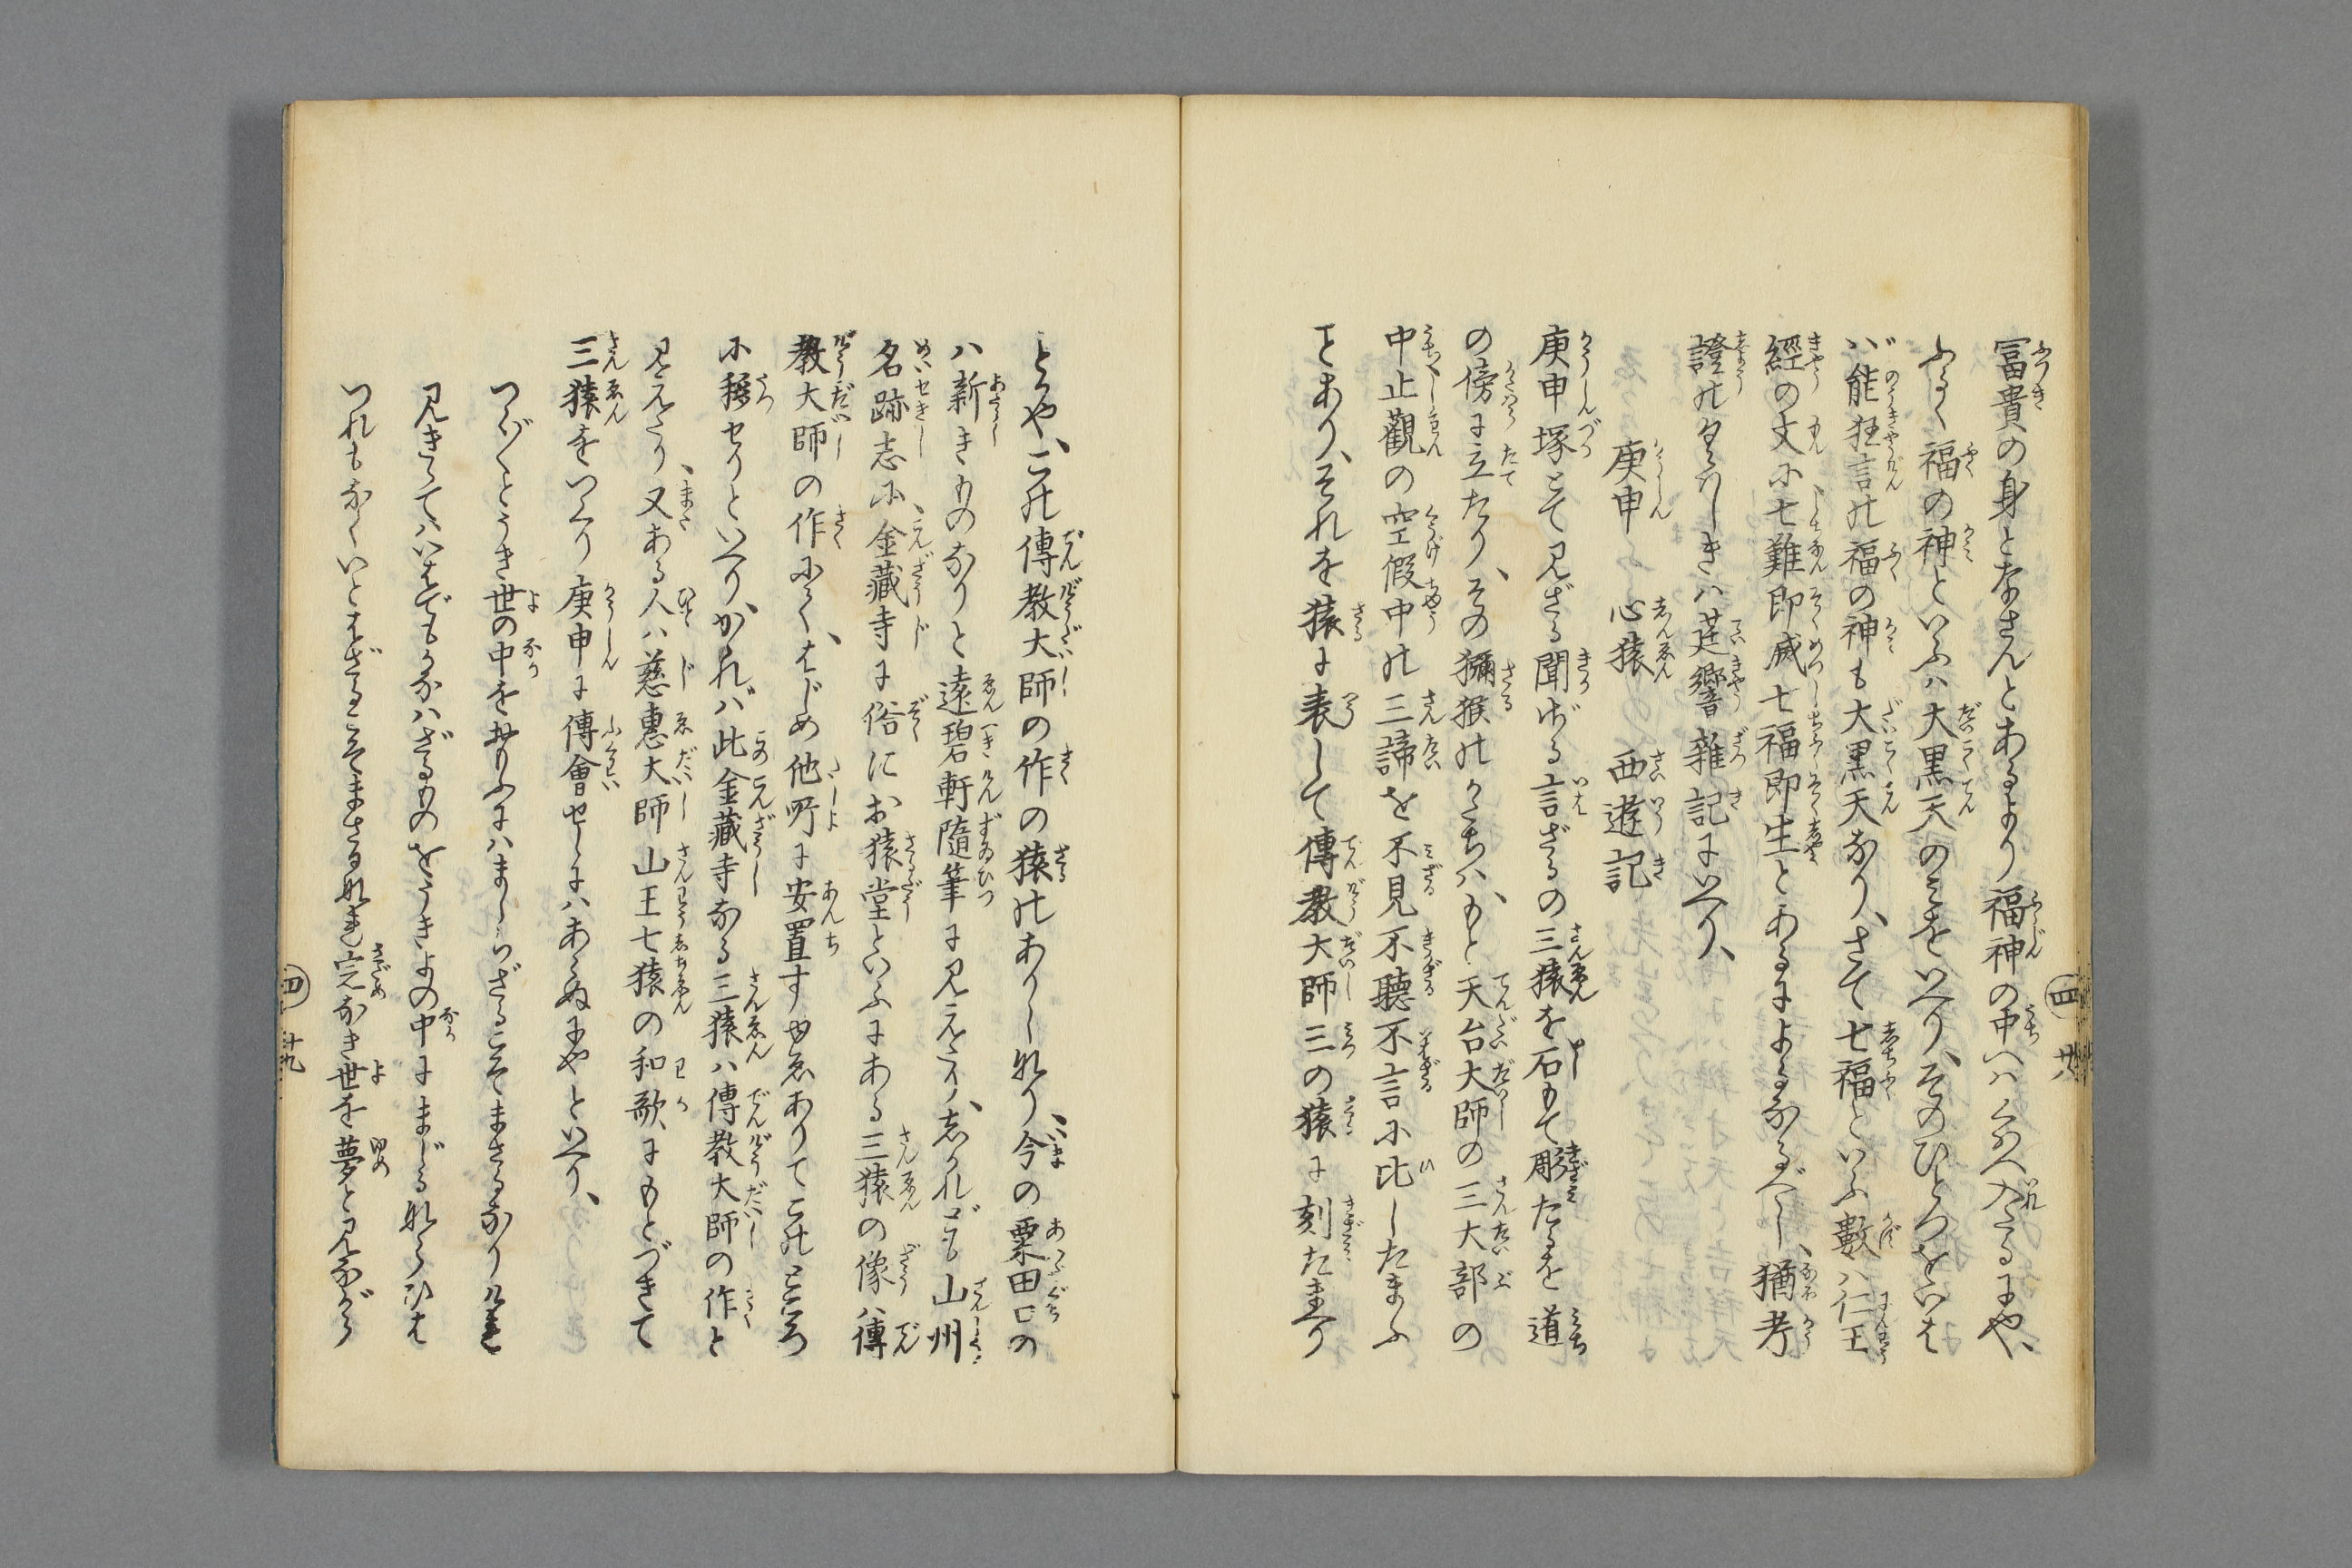 冨貴の身となさんとあるより福神の中へはくはへ入たるにや、
ふるく福の神といふは大黒天のみをいへり、そのひとつをいは
ば能狂言の福の神も大黒天なり、さて七福といふ數は仁王
經の文に七難即滅七福即生とあるによるなるべし、猶考
證のくはしきは莛響雜記にいへり、
庚申 心猿 西遊記
庚申塚とて見ざる聞ざる言ざるの三猿を石もて彫たるを道
の傍に立たり、その獼猴のかたちは、もと天台大師の三大部の
中止觀の空假中の三諦を不見不聽不言に比したまふ
とあり、それを猿に表して傳教大師三の猿に刻たまへり
とかや、この傳教大師の作の猿のありしなり、今の粟田口の
ハ新きものなりと遠碧軒隨筆に見えたり、しかれども山州
名跡志に、金藏寺に俗にお猿堂といふにある三猿の像は傳
教大師の作にて、はじめ他所に安置すゆゑありてこのところ
に移せりといへり、かゝれば此金藏寺なる三猿は傳教大師の作と
見えたり、又ある人は慈惠大師山王七猿の和歌にもとづきて
三猿をいへり庚申に傳會せしにはあらぬにやといへり、
つく〴〵とうき世の中をおもふにはまじらざるこそまさるなりけれ
見きゝてはいはでもかなはざるものをうきよの中にまじるならひは
つれもなくいとはざるこそまさるなれ定なき世を夢と見ながら
四 廿八
四 廿九